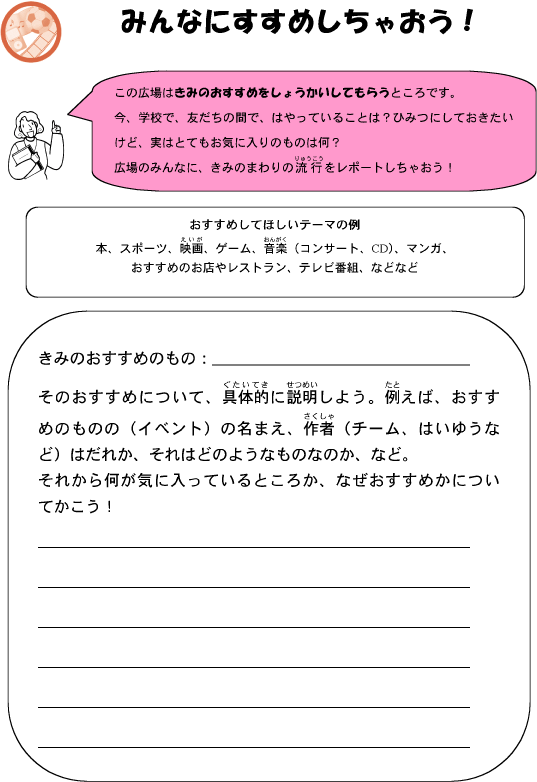 みんなにすすめしちゃおう！
この広場はきみのおすすめをしょうかいしてもらうところです。
今、学校で、友だちの間で、はやっていることは？ひみつにしておきたい
けど、実はとてもお気に入りのものは何？
広場のみんなに、きみのまわりの流行をレポートしちゃおう！
おすすめしてほしいテーマの例
本、スポーツ、映画、ゲーム、音楽（コンサート、CD）、マンガ、
おすすめのお店やレストラン、テレビ番組、などなど
きみのおすすめのもの：
そのおすすめについて、具体的に説明しよう。例えば、おすす
めのものの（イベント）の名まえ、作者（チーム、はいゆうな
ど）はだれか、それはどのようなものなのか、など。
それから何が気に入っているところか、なぜおすすめかについ
てかこう！